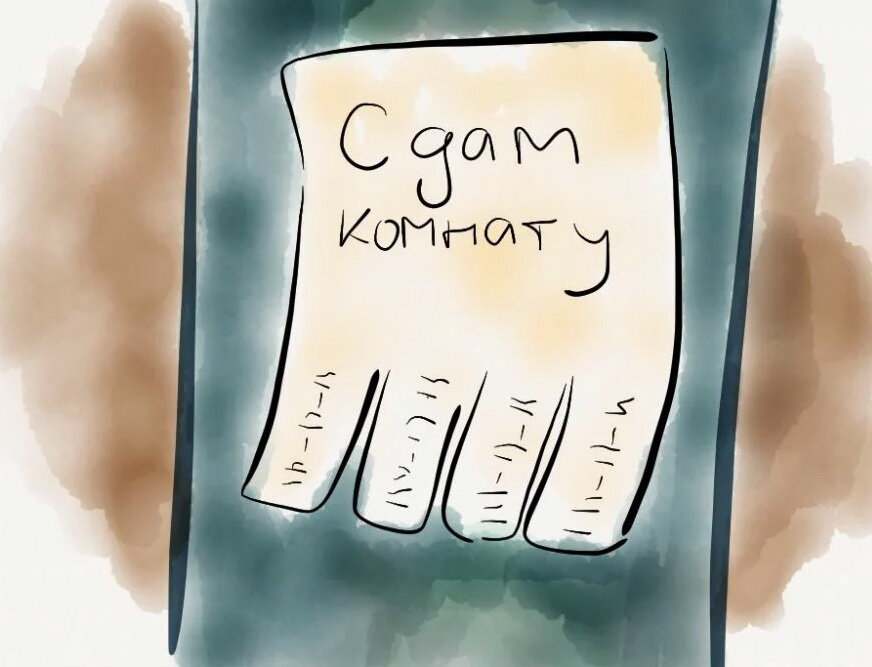 Сдам
комнату